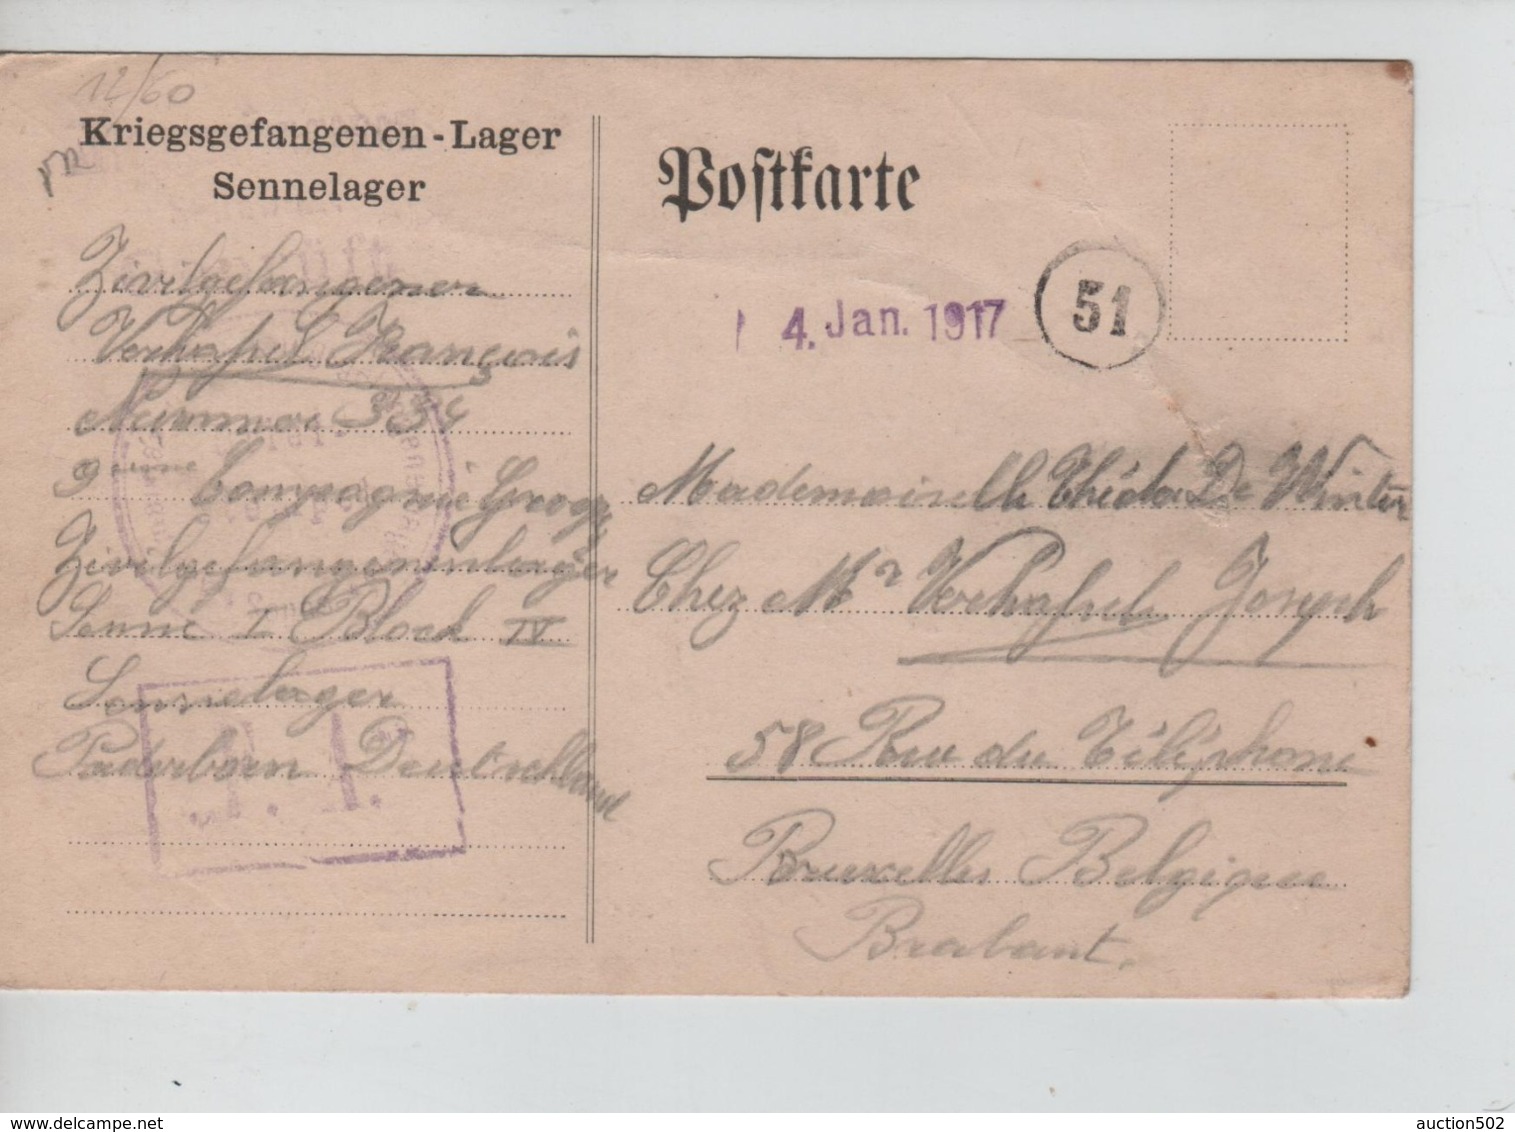 12/60
Kriegsgefangenen-Lager
Sennelager
Zivilgefangener
Verhassel François
Nummer 334
9ieme Compagnie
Zivilgefangenenlager
Senne I Block IV
Sennelager
Paderborn Deutschland
F. A.
Postkarte
4. Jan. 1917
51
Mademoiselle Théda De Winter
Chez Mr Verhassel Joseph
58 Rue du Téléphone
Bruxelles Belgique
Brabant.
auction502